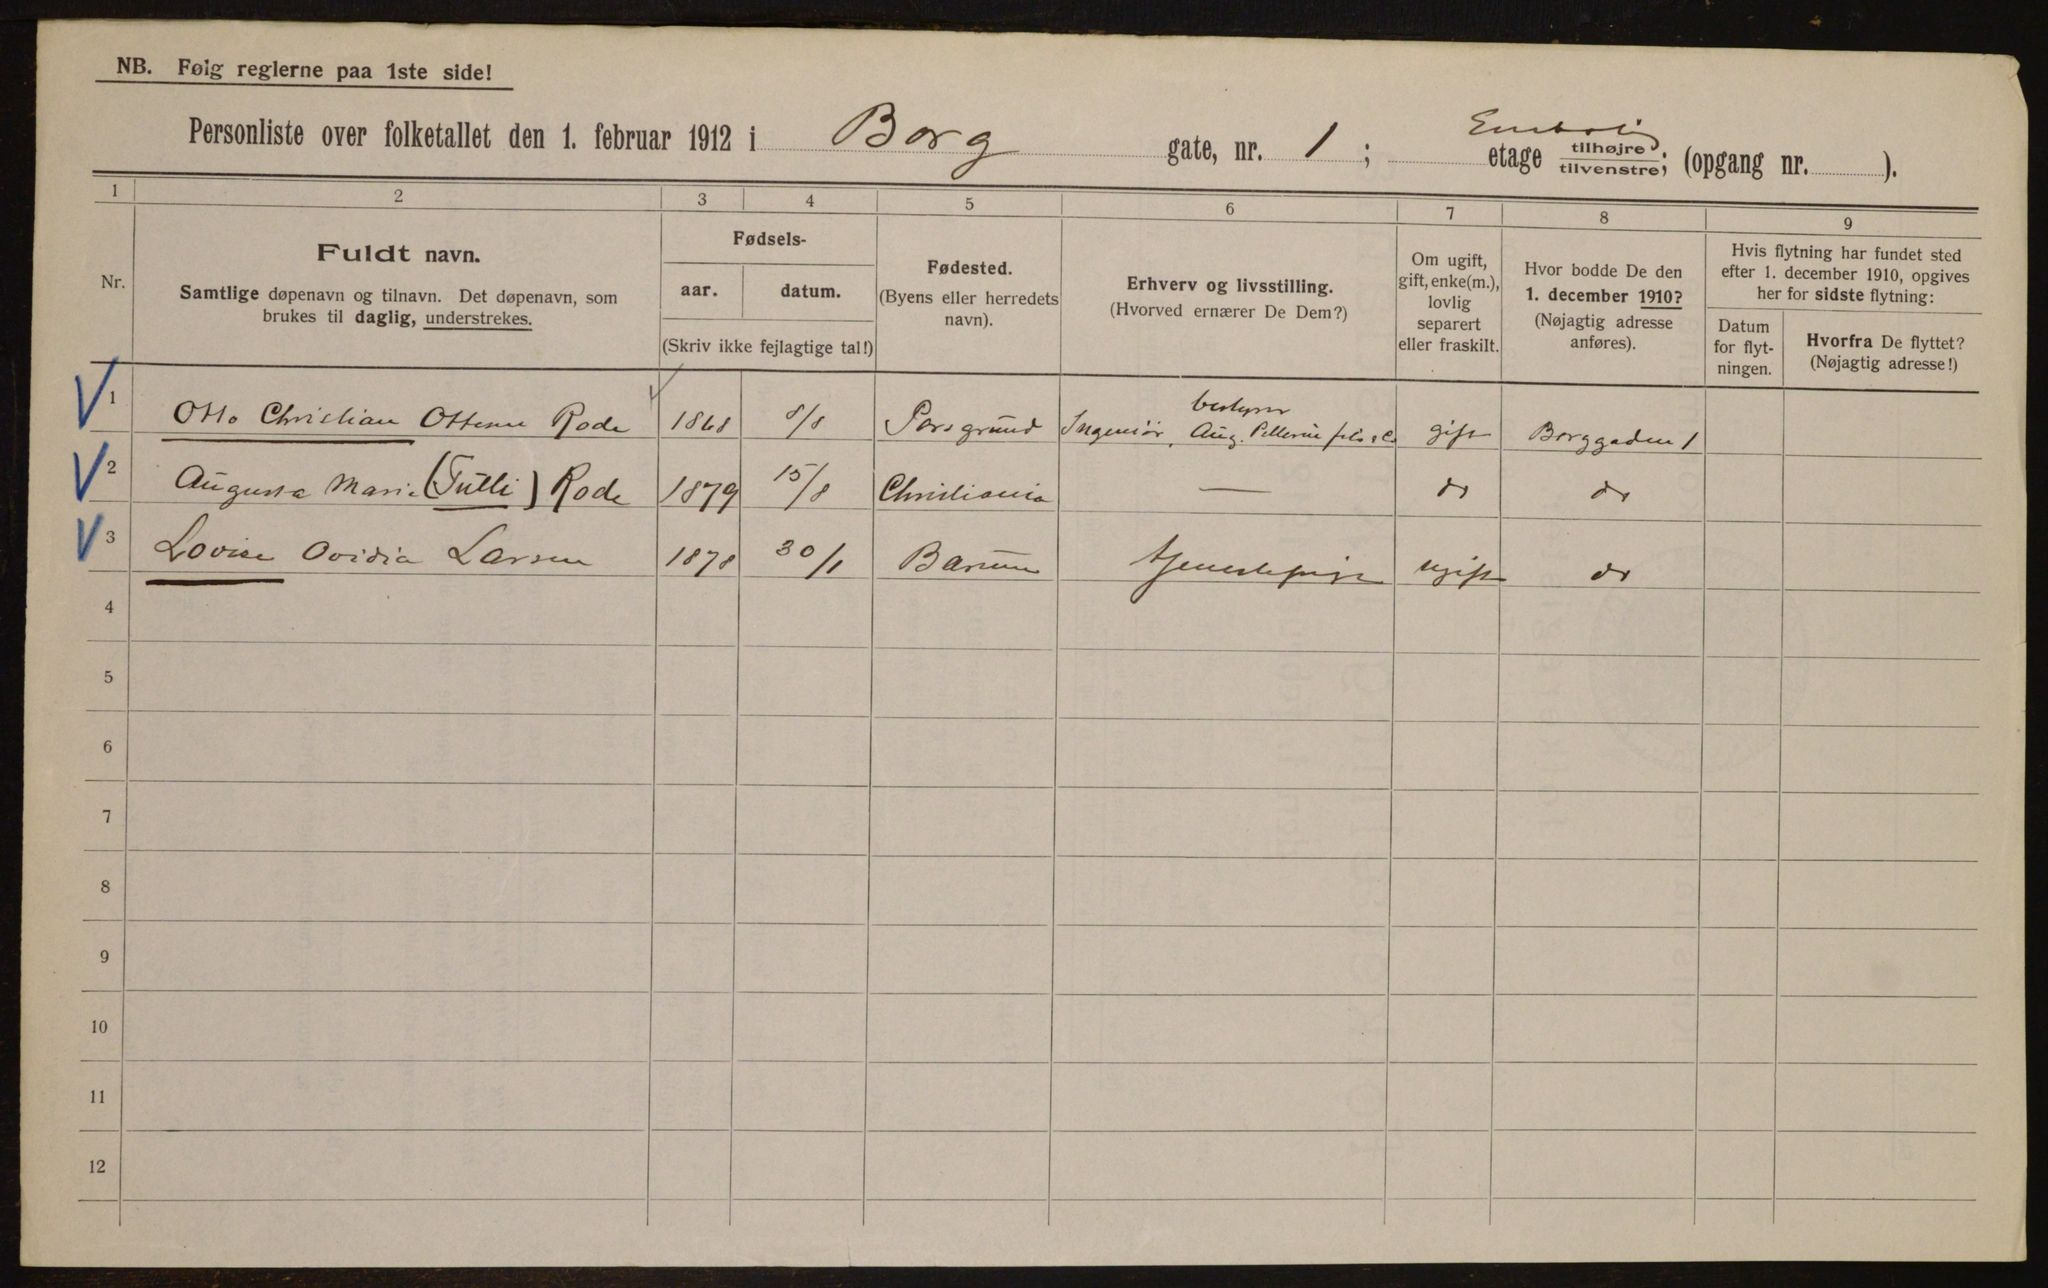 NB. Følg reglerne paa 1ste side!
Personliste over folketallet den 1. februar 1912 i Borg gate, nr. 1; etage tilhøjre/tilvenstre; (opgang nr. ).
1 2 3 4 5 6 7 8 9
Nr.
Fuldt navn.
Samtlige døpenavn og tilnavn. Det døpenavn, som
brukes til daglig, understrekes.
Fødsels-
aar. datum.
(Skriv ikke fejlagtige tal!)
Fødested.
(Byens eller herredets
navn).
Erhverv og livsstilling.
(Hvorved ernærer De Dem?)
Om ugift,
gift, enke(m.),
lovlig
separert
eller fraskilt.
Hvor bodde De den
1. december 1910?
(Nøjagtig adresse
anføres).
Hvis flytning har fundet sted
efter 1. december 1910, opgives
her for sidste flytning:
Datum
for flyt-
ningen.
Hvorfra De flyttet?
(Nøjagtig adresse!)
bestyrer
1 Otto Christian Ottesen Rode 1868 8/8 Porsgrund Ingeniør, Aug. Pellerin fils & Co gift Borggaden 1
2 Augusta Marie (Tulli) Rode 1879 15/8 Christiania — do do
3 Lovise Ovidia Larsen 1878 30/1 Bærum tjenestepige ugift do
4
5
6
7
8
9
10
11
12